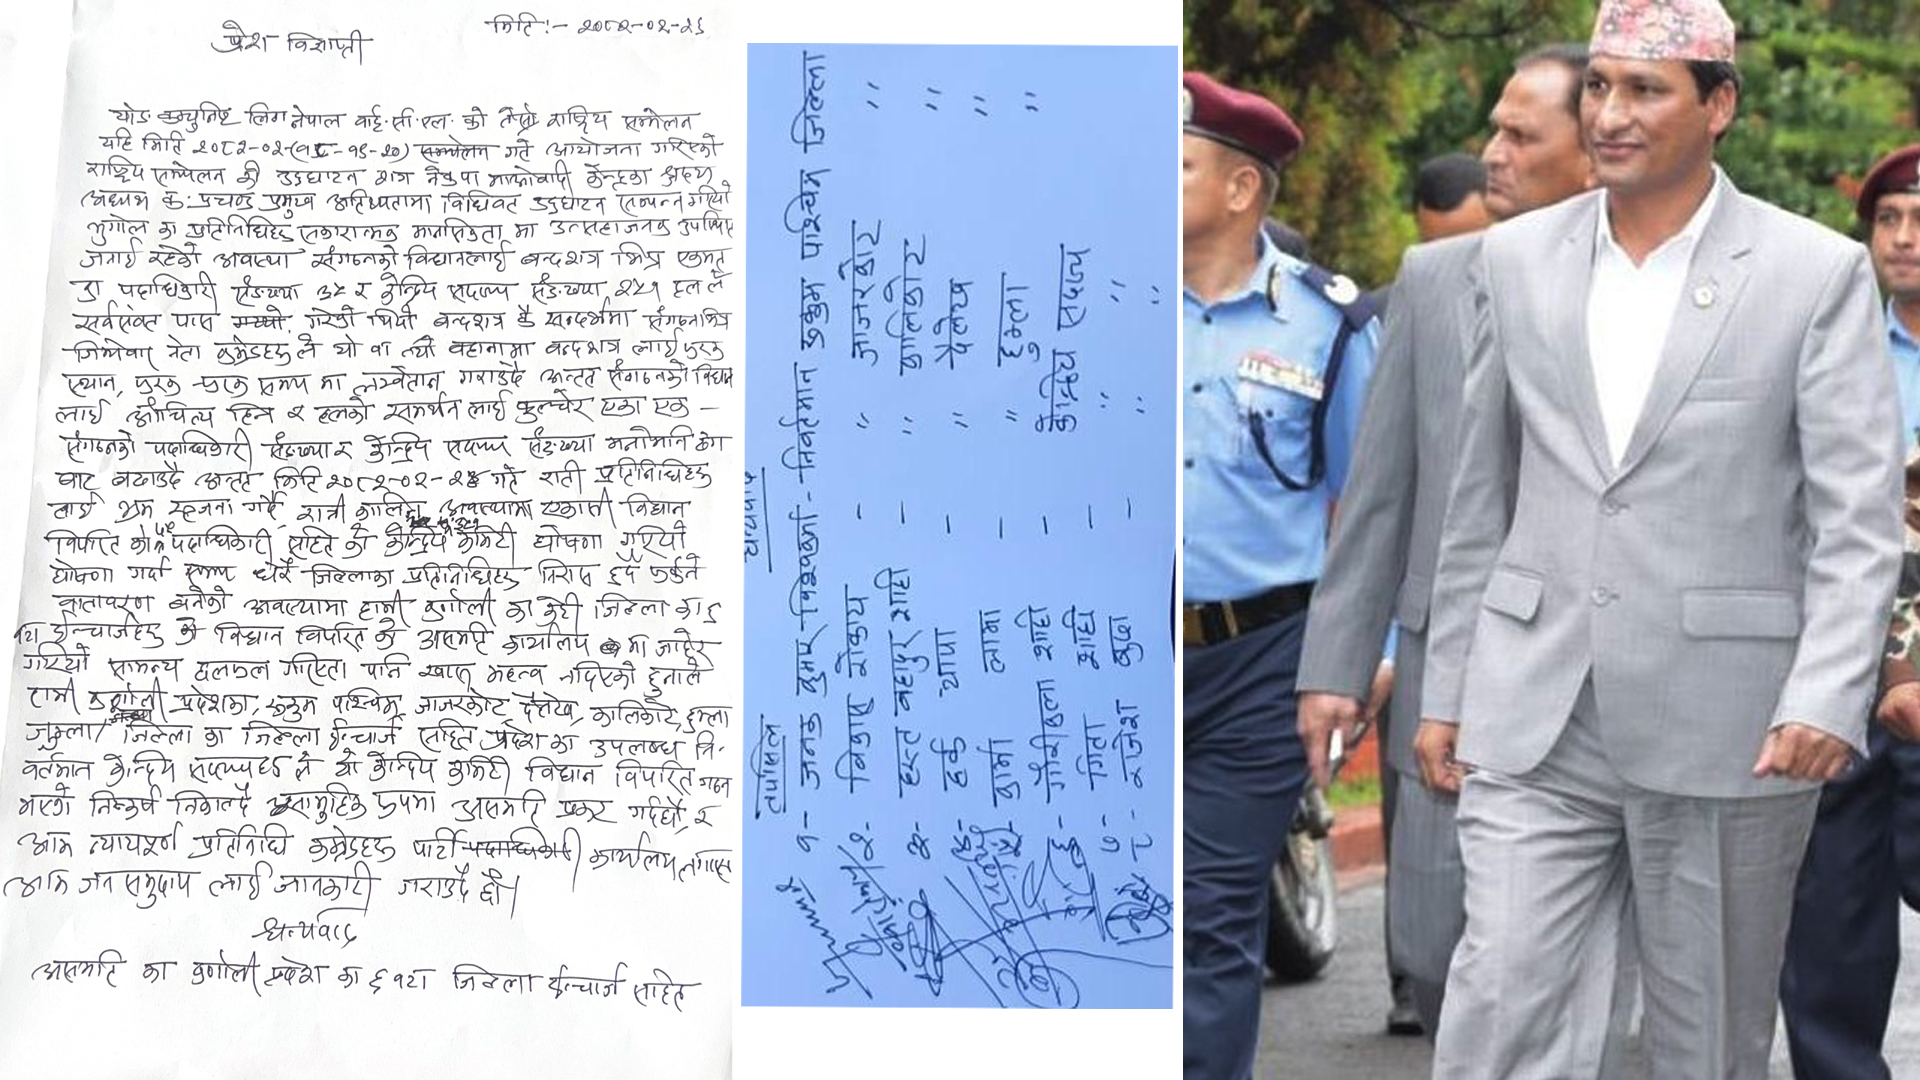 मिति:- २०८२-०२-२६
प्रेश विज्ञप्ती
योङ कम्युनिष्ट लिग नेपाल वाई.सी.एल. को तेस्रो राष्ट्रिय सम्मेलन
यहि मिति २०८२-०२-(१८-१९-२०) सम्मेलन गते आयोजना गरिएको
राष्ट्रिय सम्मेलन को उद्घाटन शत्र नेकपा माओवादी केन्द्रका श्रद्धेय
अध्यक्ष क: प्रचण्ड प्रमुख अतिथ्यतामा विधिवत उद्घाटन सम्पन्न गरियो
भुगोल का प्रतिनिधिहरु सकारात्मक मानसिकता मा उत्साहजनक उपस्थित
जनाई रहेको अवस्था संगठनको विधानलाई बन्दशत्र भित्र एकमत
का पदाधिकारी संङख्या ३५ र केन्द्रिय सदस्य संङख्या २५१ हलले
सर्वसंमत पास गरेको थियो बन्दशत्र कै सन्दर्भमा संगठनभित्र
जिम्मेवार नेता कमरेडहरु ले यो वा त्यो बहानामा बन्दशत्र लाई फरक
स्थान, फरक फरक समय मा लम्वेतान गराउँदै अन्तत संगठनको विधान
लाई औचित्य हिन र हलको समर्थन लाई कुल्चेर एका एक -
संगठनको पदाधिकारी संङख्या र केन्द्रिय सदस्य संङख्या मनोमानि ढंग
बाट बढाउदै अन्तत मिति २०८२-०२-२४ गते राती प्रतिनिधिहरु
लाई भ्रम सृजना गर्दै रात्री कालिन अवस्थामा एकाती विधान
विपरित को पदाधिकारी सहित को केन्द्रिय कमिटी घोषणा गरियो
घोषणा गर्दा सम्म धेरै जिल्लाका प्रतिनिधिहरु निरास हुदै फर्कने
वातावरण बनेको अवस्थामा हामी कर्णाली का केही जिल्ला का इ
ईन्चार्जहरु को विधान विपरित को असमति कार्यालय मा जाहेर
गरियो सामन्य छलफल गरिएता पनि खास महत्व नदिएको हुनाले
हामी कर्णाली प्रदेशका, रुकुम पश्चिम, जाजरकोट, दैलेख, कालिकोट, हुम्ला
जुम्ला जिल्ला का जिल्ला ईन्चार्ज सहित प्रदेश का उपलब्ध नि-
वर्तमान केन्द्रिय सदस्यहरु ले यो केन्द्रिय कमिटी विधान विपरित गठन
भएको निस्कर्ष निकाल्दै सामुहिक रुपमा असमति प्रकट गर्दछौ, र
आम न्यायपूर्ण प्रतिनिधि कमरेडहरु पार्टी कार्यालय लगायत
आम जन समुदाय लाई जानकारी गराउदै छौ।
धन्यवाद
असमति का कर्णाली प्रदेश का ६ वटा जिल्ला ईन्चार्ज सहित
धन्यवाद
तपसिल
१- जनक कुमार विश्वकर्मा - निवर्तमान रुकुम पश्चिम जिल्ला
२- विकास रोकाय - " जाजरकोट "
३- हस्त बहादुर शाही - " कालिकोट "
४- हर्क थापा - " दैलेख "
५- कार्मा लामा - " हुम्ला "
६- गौरीकला शाही - केन्द्रिय सदस्य
७- गिता शाही - " "
८- राजेश बुढा - " "